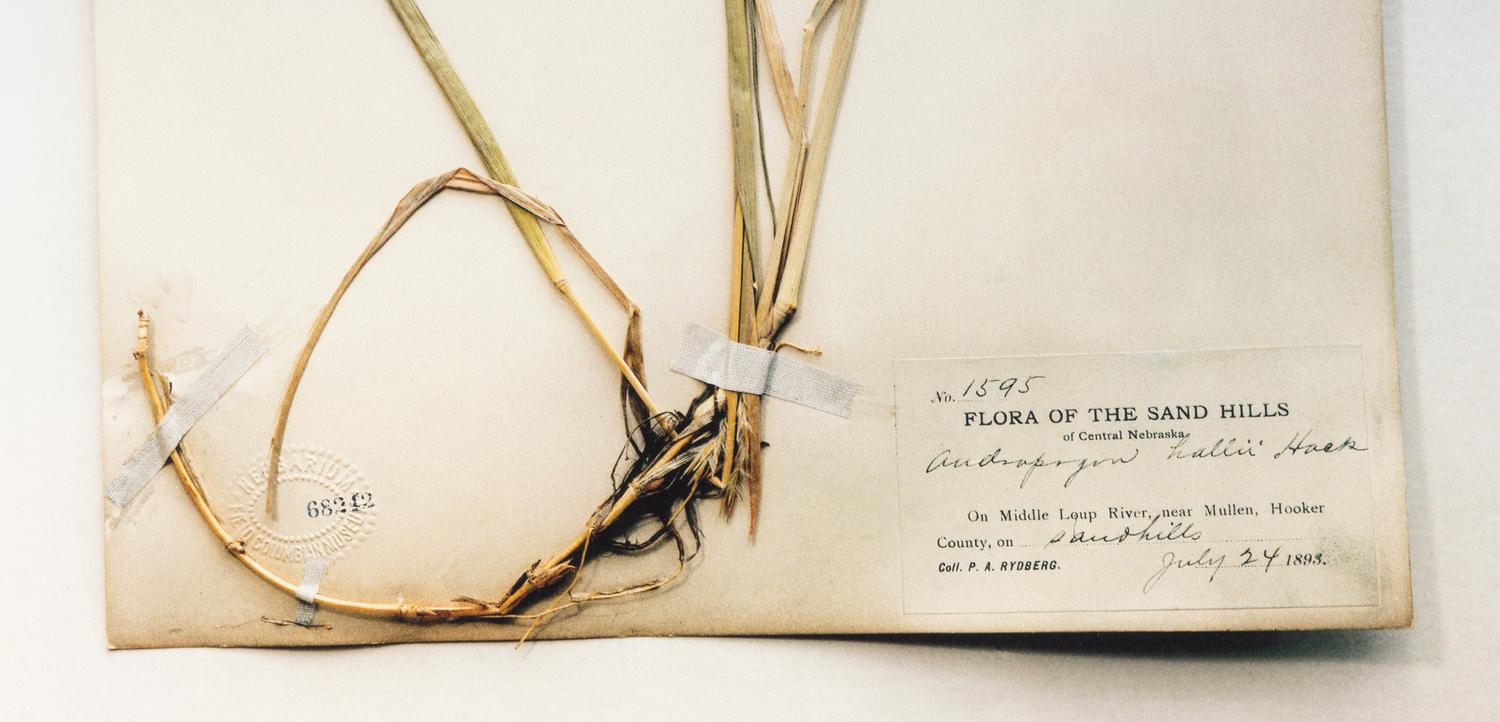 No. 1595
FLORA OF THE SAND HILLS
of Central Nebraska.
Andropogon hallii Hack
On Middle Loup River, near Mullen, Hooker
County, on sandhills
Coll. P. A. RYDBERG. July 24 1893.
HERBARIUM
68242
COLUMBIAN MUSEUM